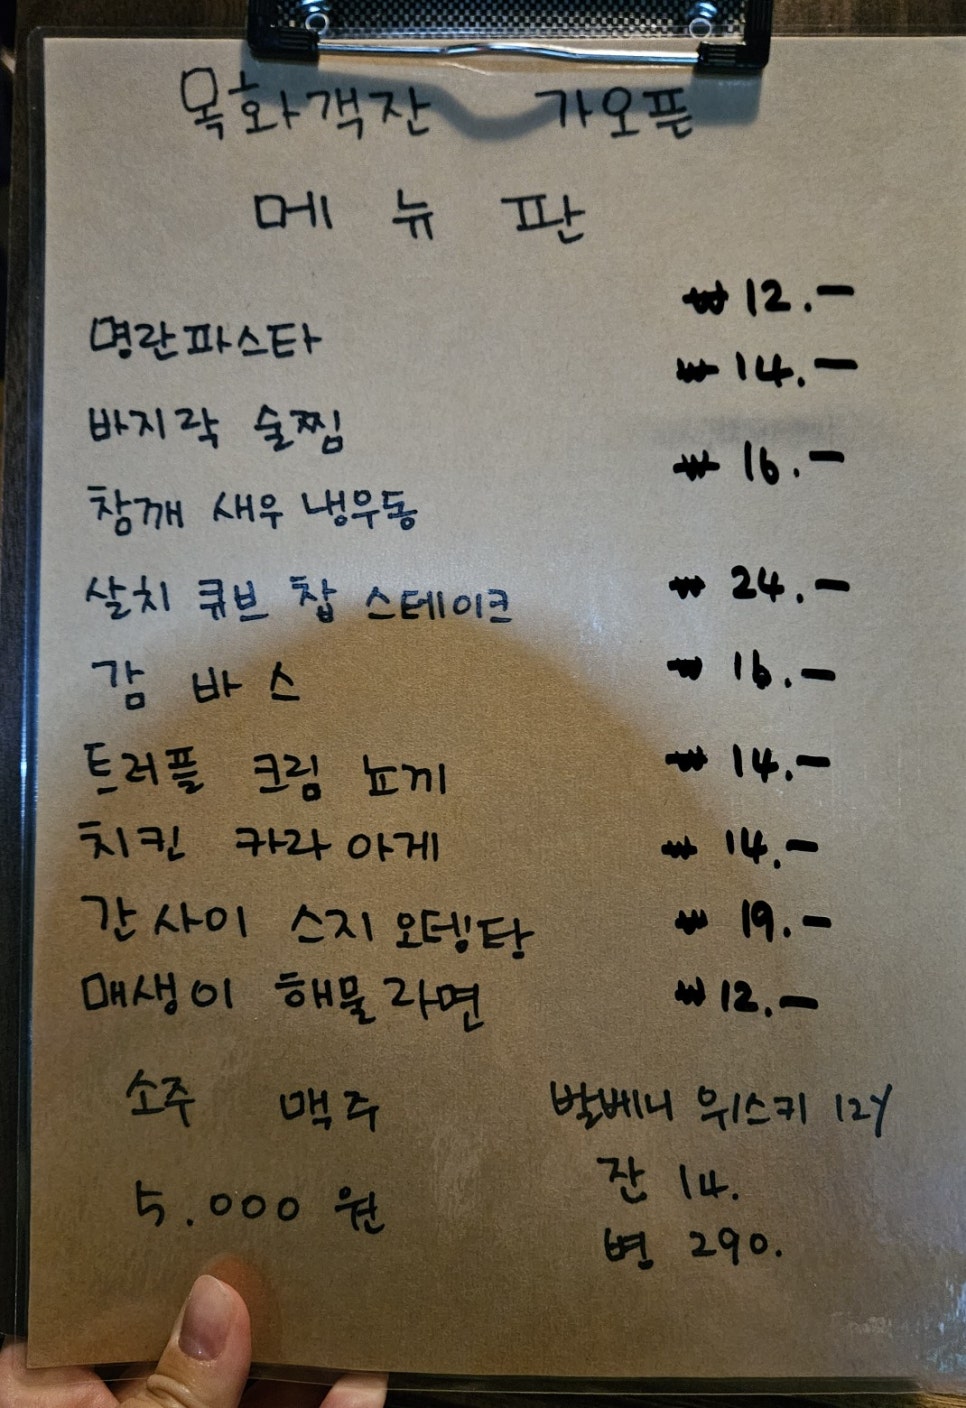 목화객잔 가오픈
메뉴판
명란파스타 ₩12.-
바지락 술찜 ₩14.-
참깨 새우 냉우동 ₩16.-
살치 큐브 찹 스테이크 ₩24.-
감바스 ₩16.-
트러플 크림 뇨끼 ₩14.-
치킨 카라아게 ₩14.-
간사이 스지 오뎅탕 ₩19.-
매생이 해물라면 ₩12.-
소주 맥주 발베니 위스키 12Y
5.000원 잔 14.
병 290.